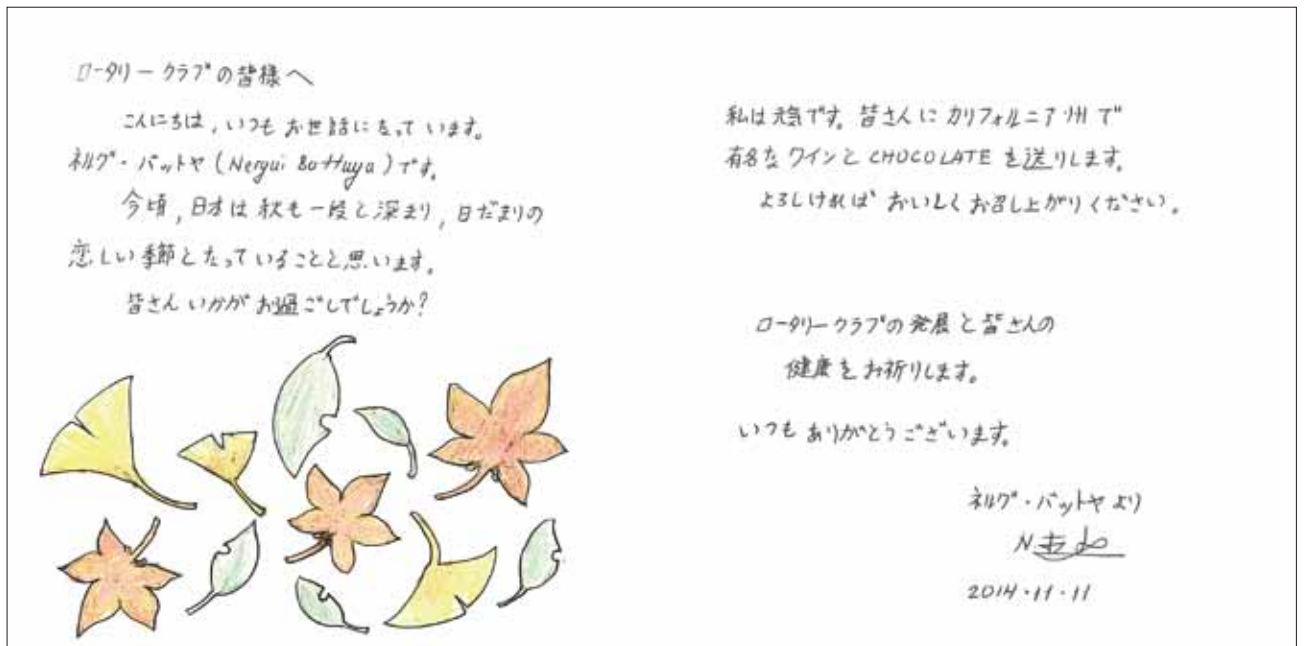 ロータリークラブの皆様へ
こんにちは,いつもお世話になっています。
ネルグ・バットヤ(Nergui Battuya)です。
今頃,日本は秋も一段と深まり,日だまりの
恋しい季節となっていることと思います。
皆さんいかがお過ごしでしょうか?
私は元気です。皆さんにカリフォルニア州で
有名なワインとCHOCOLATEを送りします。
よろしければおいしくお召し上がりください。
ロータリークラブの発展と皆さんの
健康をお祈りします。
いつもありがとうございます。
ネルグ・バットヤより
2014・11・11